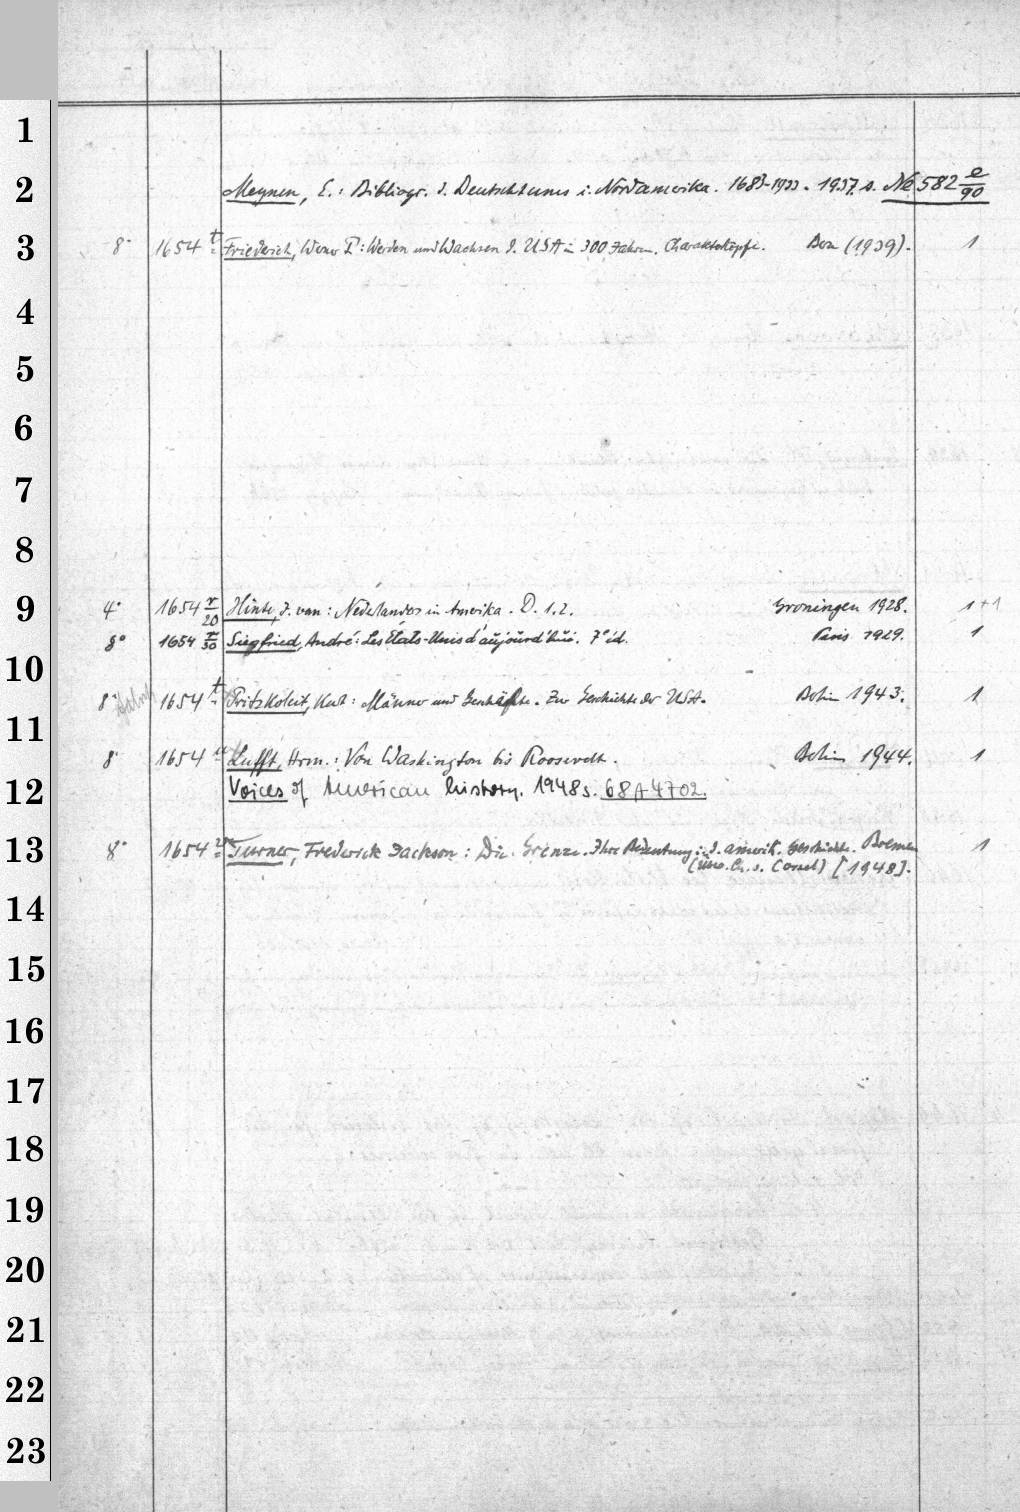 1
2 Meynen, E.: Bibliogr. d. Deutschtums i. Nordamerika. 1683-1933. 1937. s. Ne 582 e/90
3 8° 1654 t Friederich, Werner P.: Werden und Wachsen d. USA in 300 Jahren. Charakterköpfe. Bern (1939). 1
4
5
6
7
8
9 4° 1654 r/20 Hinte, J. van: Nederlanders in Amerika. D. 1.2. Groningen 1928. 1+1
8° 1654 r/30 Siegfried, André: Les États-Unis d'aujourd'hui. 7e éd. Paris 1929. 1
10
8° 1654 t Pritzkoleit, Kurt: Männer und Geschäfte. Zur Geschichte der USA. Berlin 1943. 1
11
8° 1654 u Lufft, Herm.: Von Washington bis Roosevelt. Berlin 1944. 1
12 Voices of American history. 1948 s. 68 A 4702.
13 8° 1654 Turner, Frederick Jackson: Die Grenze. Ihre Bedeutung i. d. amerik. Geschichte. Bremen 1
[1948].
14
15
16
17
18
19
20
21
22
23